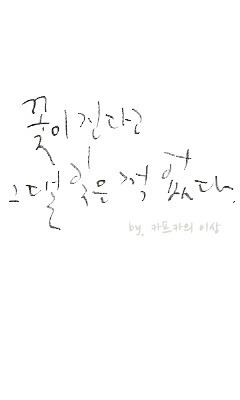 꽃이 진다고
그댈 잊은 적 없다.
by. 카프카의 이상